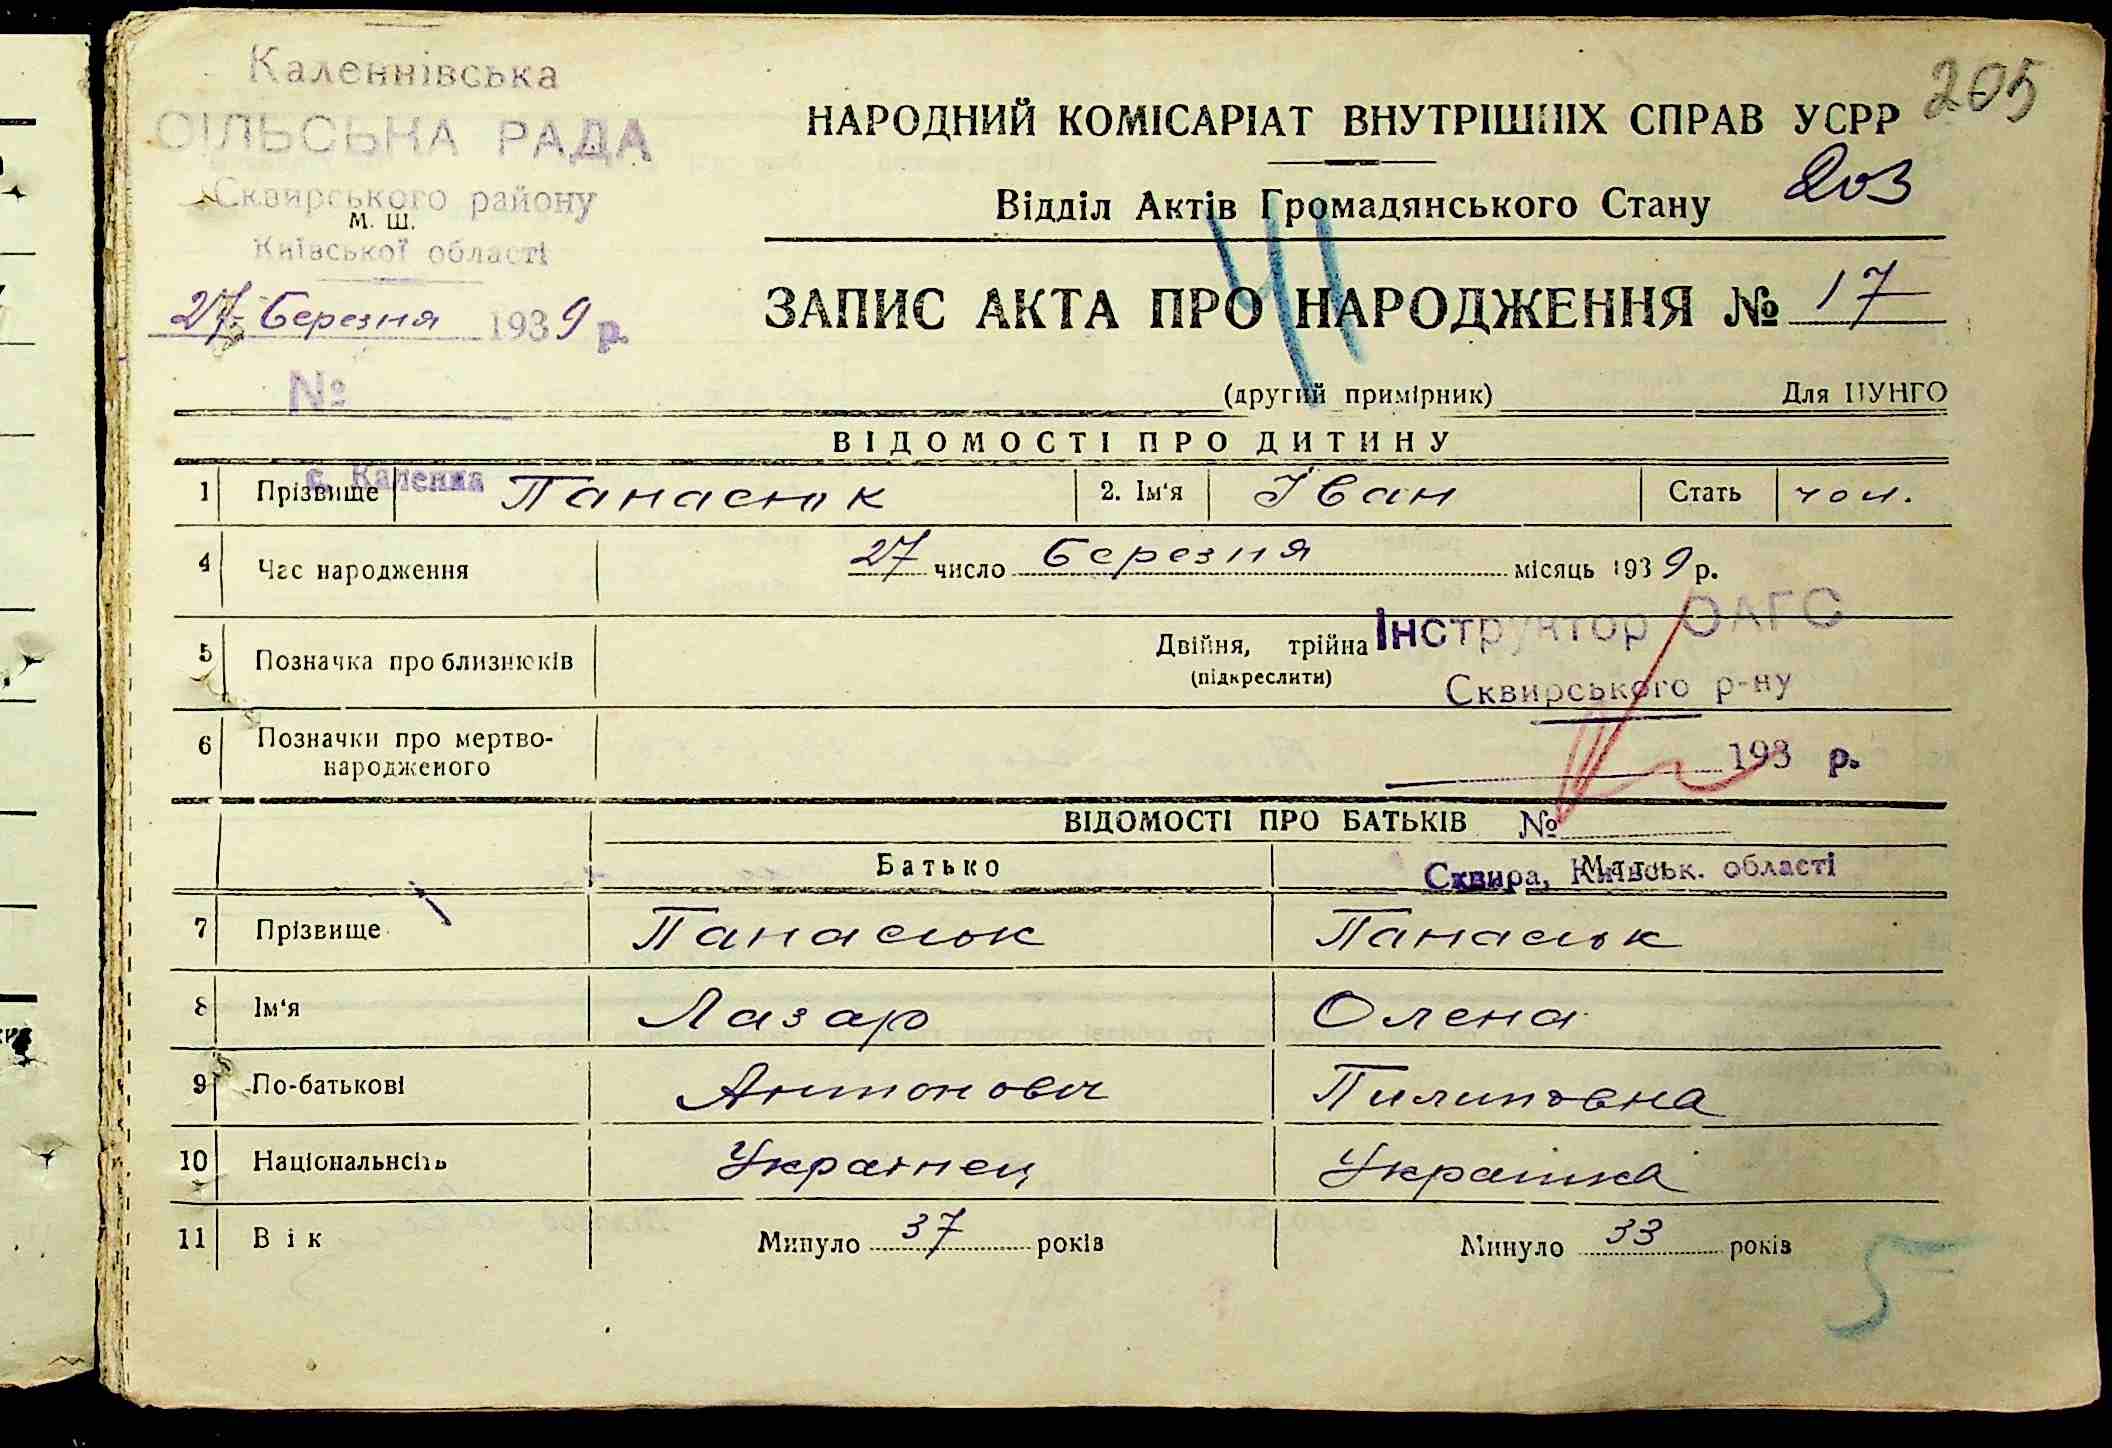 205
Каленнівська
СІЛЬСЬКА РАДА
Сквирського району
М. Ш.
Київської області
27 Березня 1939 р.
№
с. Каленна
НАРОДНИЙ КОМІСАРІАТ ВНУТРІШНІХ СПРАВ УСРР
203
Відділ Актів Громадянського Стану
ЗАПИС АКТА ПРО НАРОДЖЕННЯ № 17
(другий примірник) Для ЦУНГО
ВІДОМОСТІ ПРО ДИТИНУ
1 Прізвище Панасюк 2. Ім'я Іван Стать чол.
4 Час народження 27 число Березня місяць 1939 р.
5 Позначка про близнюків Двійня, трійна
(підкреслити)
Інструктор ОАГС
Сквирського р-ну
6 Позначки про мертво-
народженого
193 р.
ВІДОМОСТІ ПРО БАТЬКІВ №
Батько Мати
Сквира, Київськ. області
7 Прізвище Панасюк Панасюк
8 Ім'я Лазар Олена
9 По-батькові Антонович Пилиповна
10 Національність Українец Українка
11 Вік Минуло 37 років Минуло 33 років
5